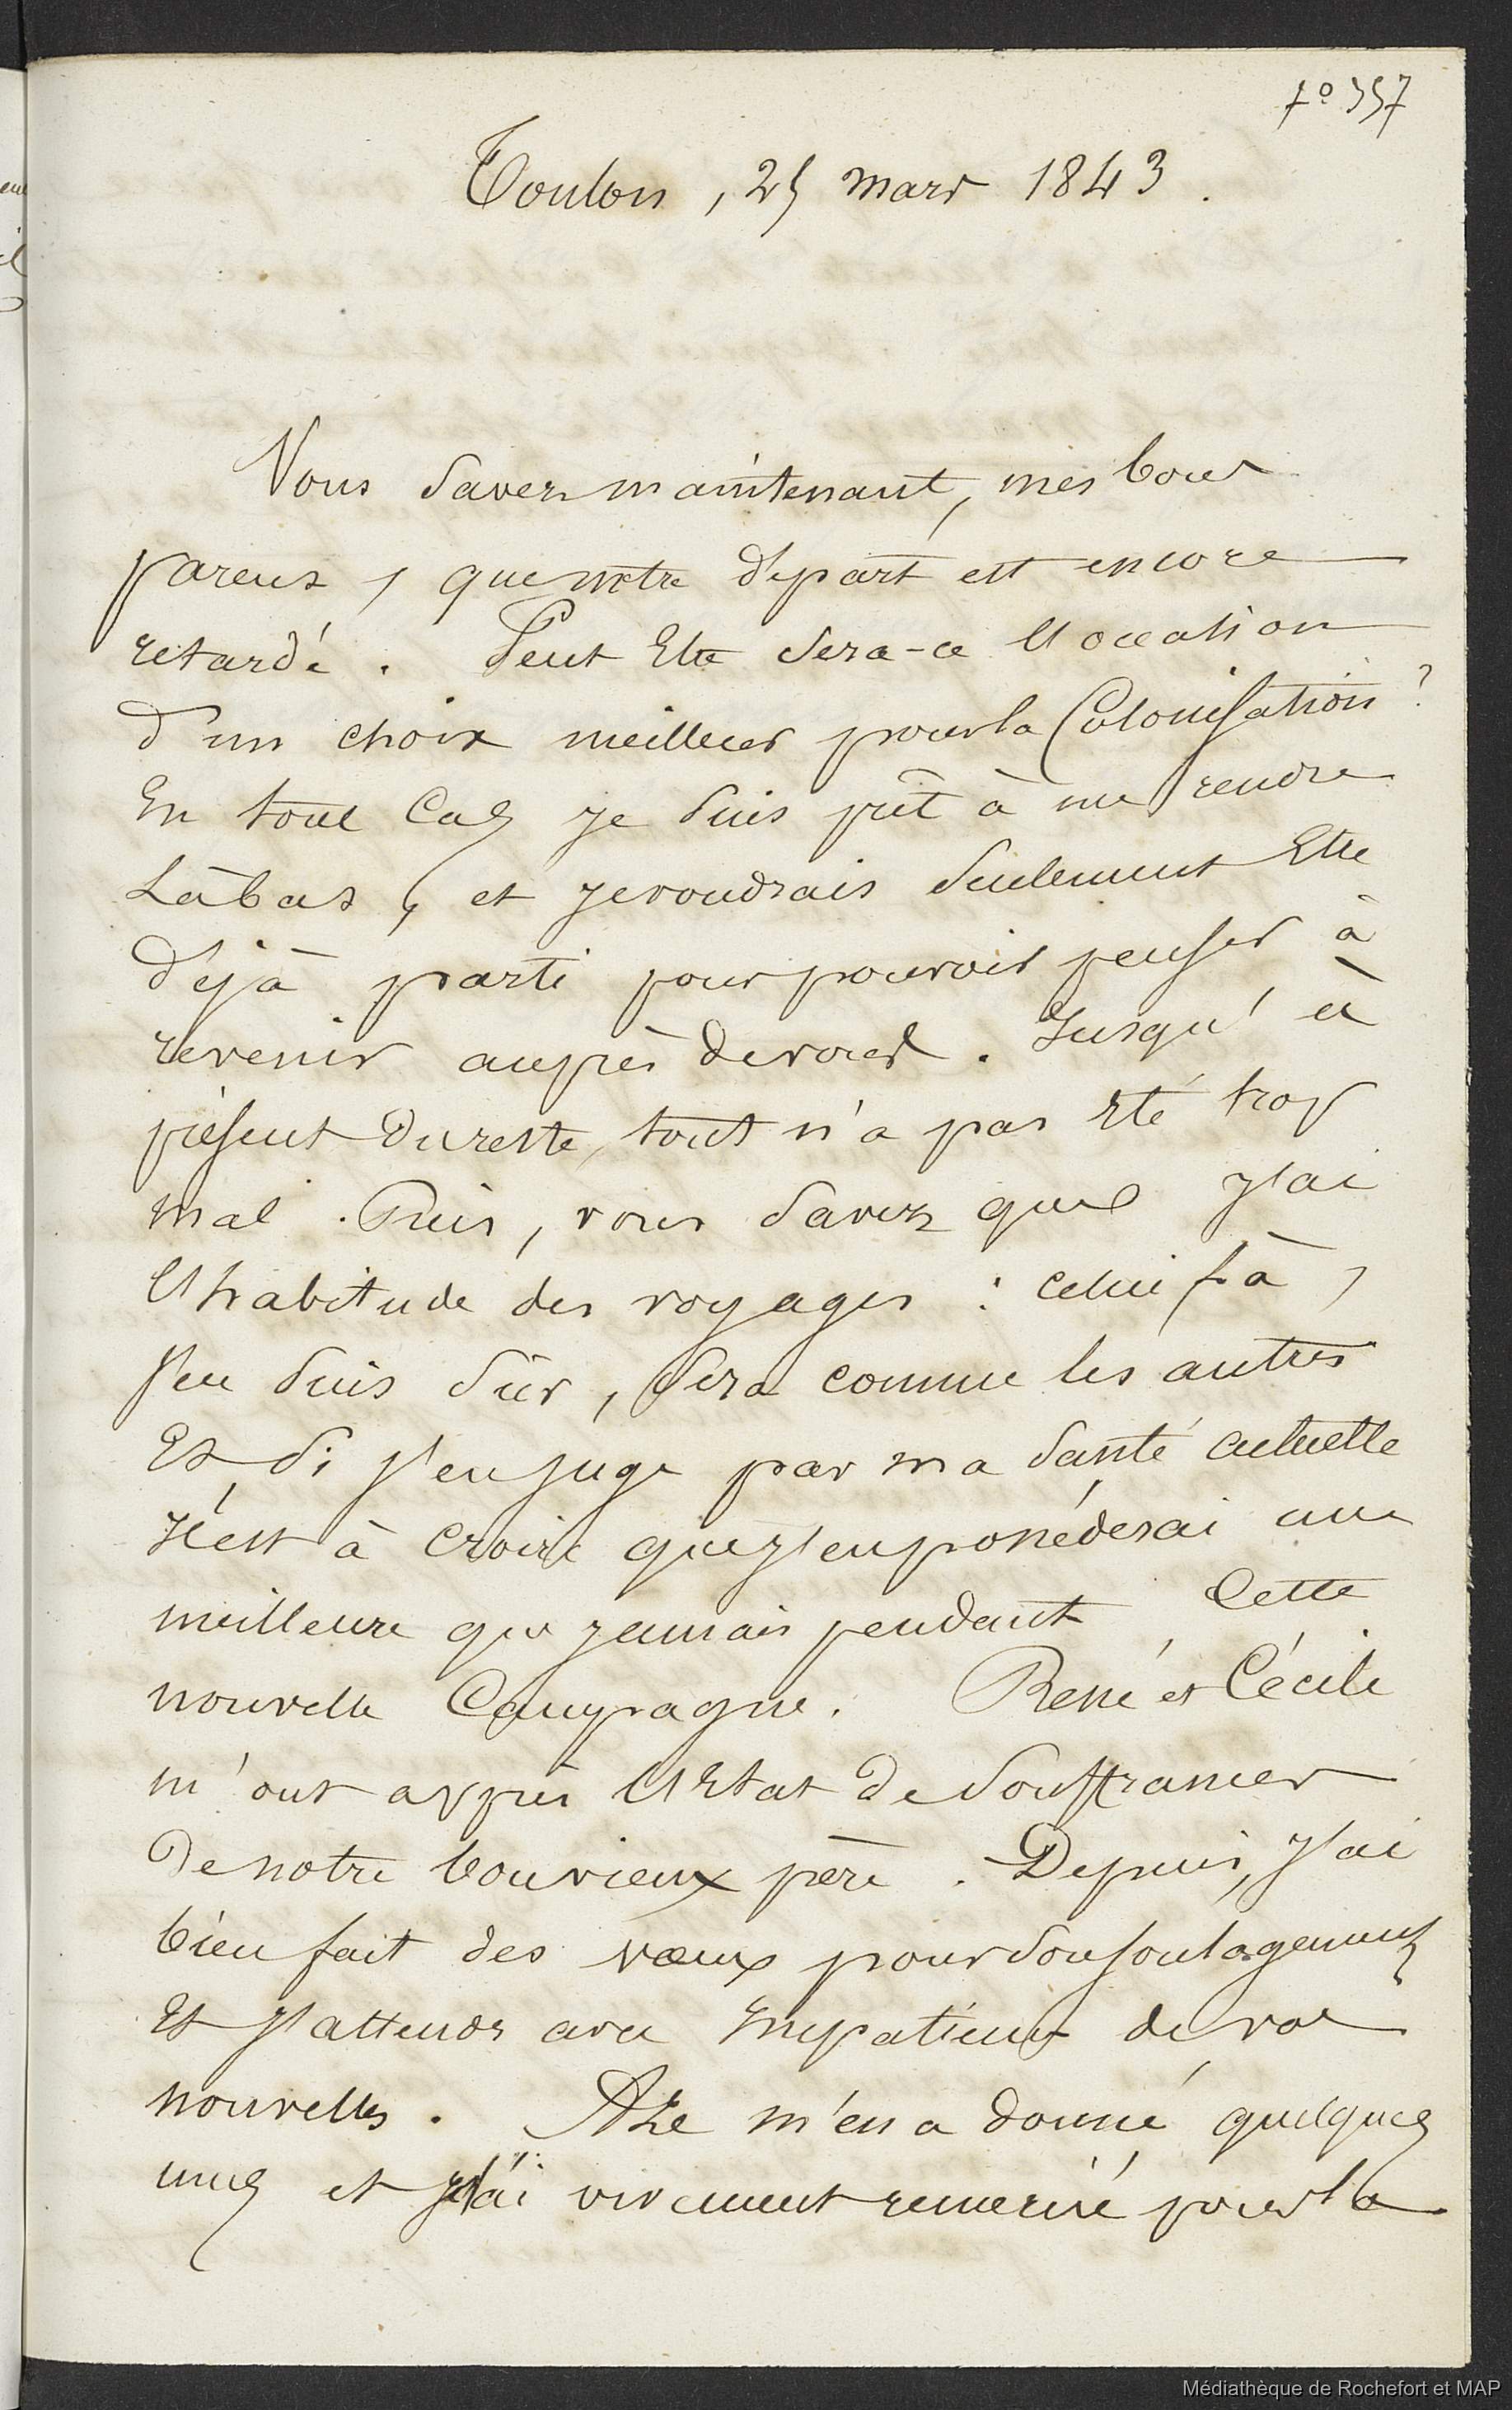 fo 357
Toulon, 25 mars 1843.
Vous savez maintenant, mes bons
parens, que notre départ est encore
retardé. Peut Etre sera-ce l'occasion
d'un choix meilleur pour la Colonisation?
En tout Cas je suis prêt à me rendre
Làbas, et je voudrais seulement Etre
déjà parti pour pouvoir penser à
revenir auprès de vous. Jusqu'à
présent du reste, tout n'a pas Eté trop
mal. Puis, vous savez que j'ai
l'habitude des voyages: celui là,
j'en suis sûr, sera comme les autres
Et si j'en juge par ma santé actuelle
Il est à croire que j'en possèderai une
meilleure que jamais pendant Cette
nouvelle Campagne. René et Cécile
m'ont appris l'Etat de Souffrances
de notre bon vieux père. Depuis, j'ai
bien fait des vœux pour son soulagement
Et j'attends avec Impatience de vos
nouvelles. m'en a donné quelques
unes et j'ai vivement remercié pour la
Médiathèque de Rochefort et MAP